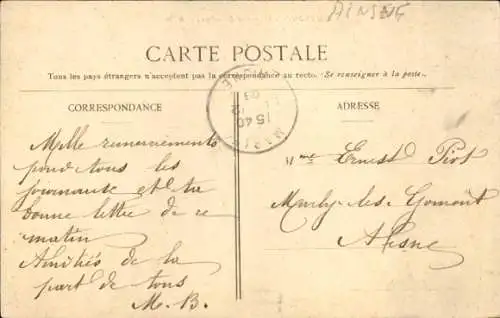 AINSNE
CARTE POSTALE
Tous les pays étrangers n'acceptent pas la correspondance au recto. (Se renseigner à la poste).
CORRESPONDANCE
ADRESSE
15 40
MARLE
Mille remerciements
pour tous les
journaux et ta
bonne lettre de ce
matin
Amitiés de la
part de tous
M. B.
Mme Ernest Piot
Marly-les-Gomont
Aisne